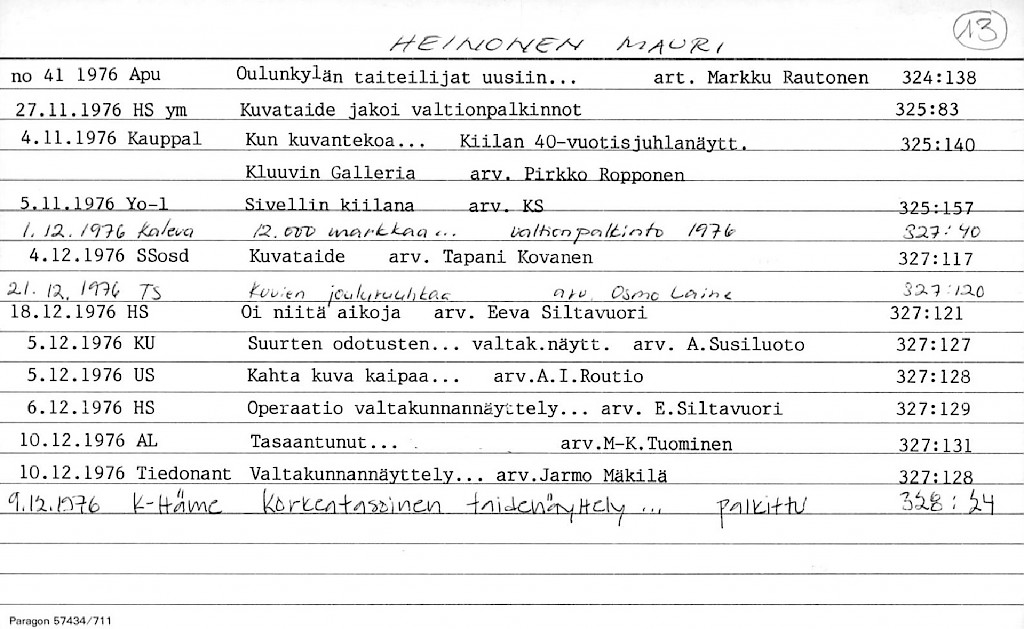 HEINONEN MAURI 13
no 41 1976 Apu Oulunkylän taiteilijat uusiin... art. Markku Rautonen 324:138
27.11.1976 HS ym Kuvataide jakoi valtionpalkinnot 325:83
4.11.1976 Kauppal Kun kuvantekoa... Kiilan 40-vuotisjuhlanäytt. 325:140
Kluuvin Galleria arv. Pirkko Ropponen
5.11.1976 Yo-l Sivellin kiilana arv. KS 325:157
1.12.1976 Kaleva 12.000 markkaa... valtionpalkinto 1976 327:40
4.12.1976 SSosd Kuvataide arv. Tapani Kovanen 327:117
21.12.1976 TS Kuvien jouluruuhkaa arv. Osmo Laine 327:120
18.12.1976 HS Oi niitä aikoja arv. Eeva Siltavuori 327:121
5.12.1976 KU Suurten odotusten... valtak.näytt. arv. A.Susiluoto 327:127
5.12.1976 US Kahta kuva kaipaa... arv.A.I.Routio 327:128
6.12.1976 HS Operaatio valtakunnannäyttely... arv. E.Siltavuori 327:129
10.12.1976 AL Tasaantunut... arv.M-K.Tuominen 327:131
10.12.1976 Tiedonant Valtakunnannäyttely... arv.Jarmo Mäkilä 327:128
9.12.1976 K-Häme Korkeatasoinen taidenäyttely... palkittu 328:24
Paragon 57434/711